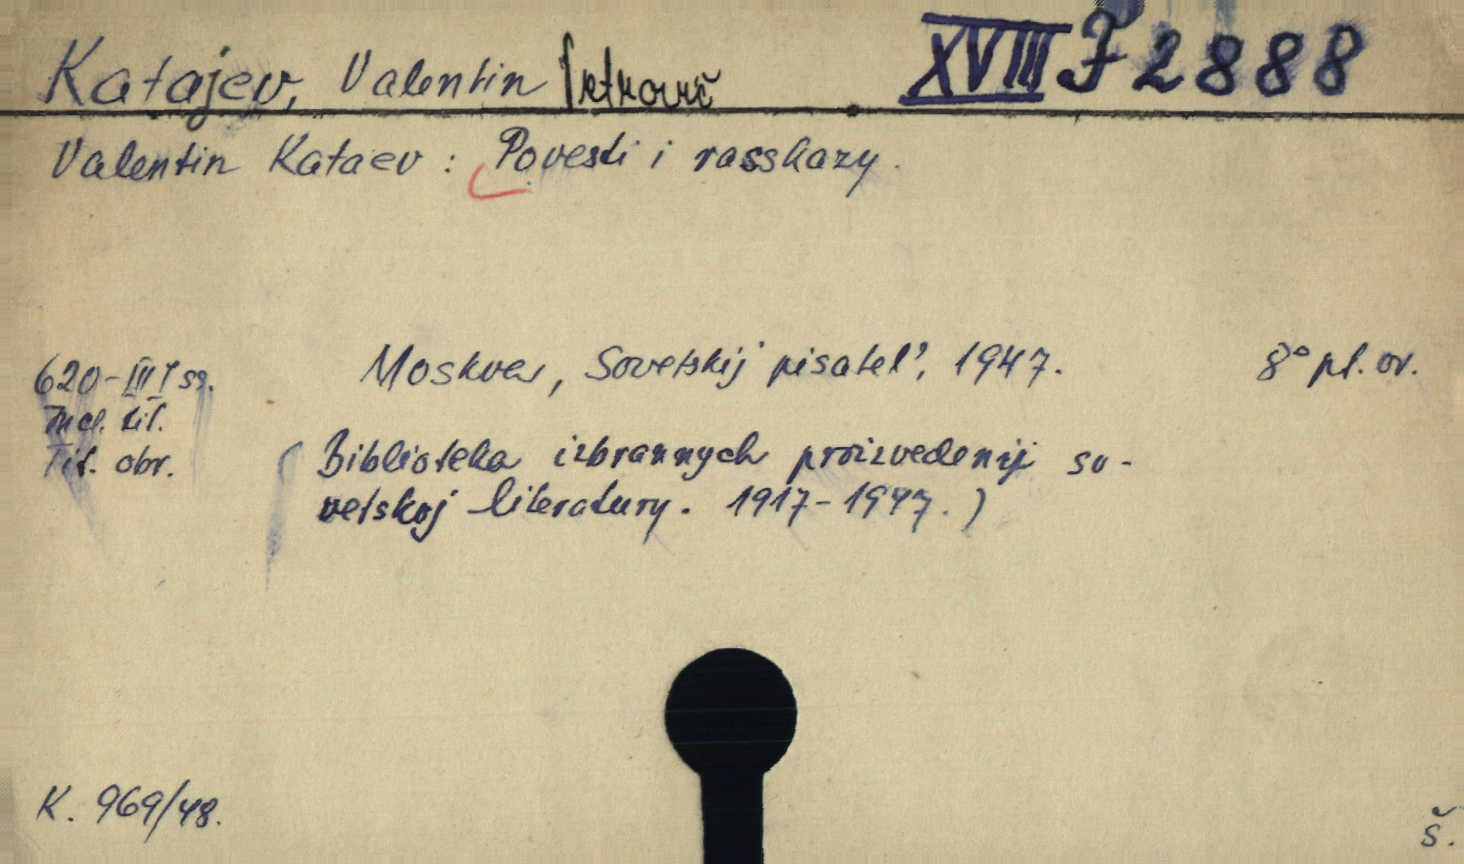 Katajev, Valentin Petrovič XVIII F 2888
Valentin Kataev: Povesti i rasskazy.
620-III I ss. Moskva, Sovetskij pisatel', 1947. 8° pl. ov.
Incl. tit.
Tit. obr. (Biblioteka izbrannych proizvedenij so-
vetskoj literatury. 1917-1947.)
K. 969/48.
Š.